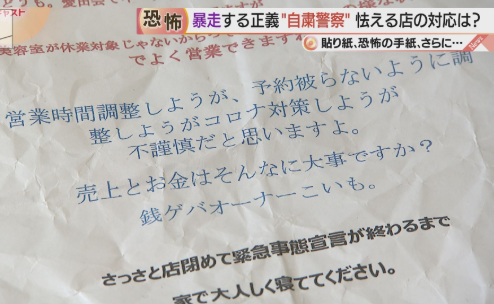 キャスト
恐怖 暴走する正義"自粛警察" 怯える店の対応は?
貼り紙、恐怖の手紙、さらに…
美容室が休業対象じゃないから
でよく営業できます
営業時間調整しようが、予約被らないように調
整しようがコロナ対策しようが
不謹慎だと思いますよ。
売上とお金はそんなに大事ですか?
銭ゲバオーナーこいも。
さっさと店閉めて緊急事態宣言が終わるまで
家で大人しく寝ててください。